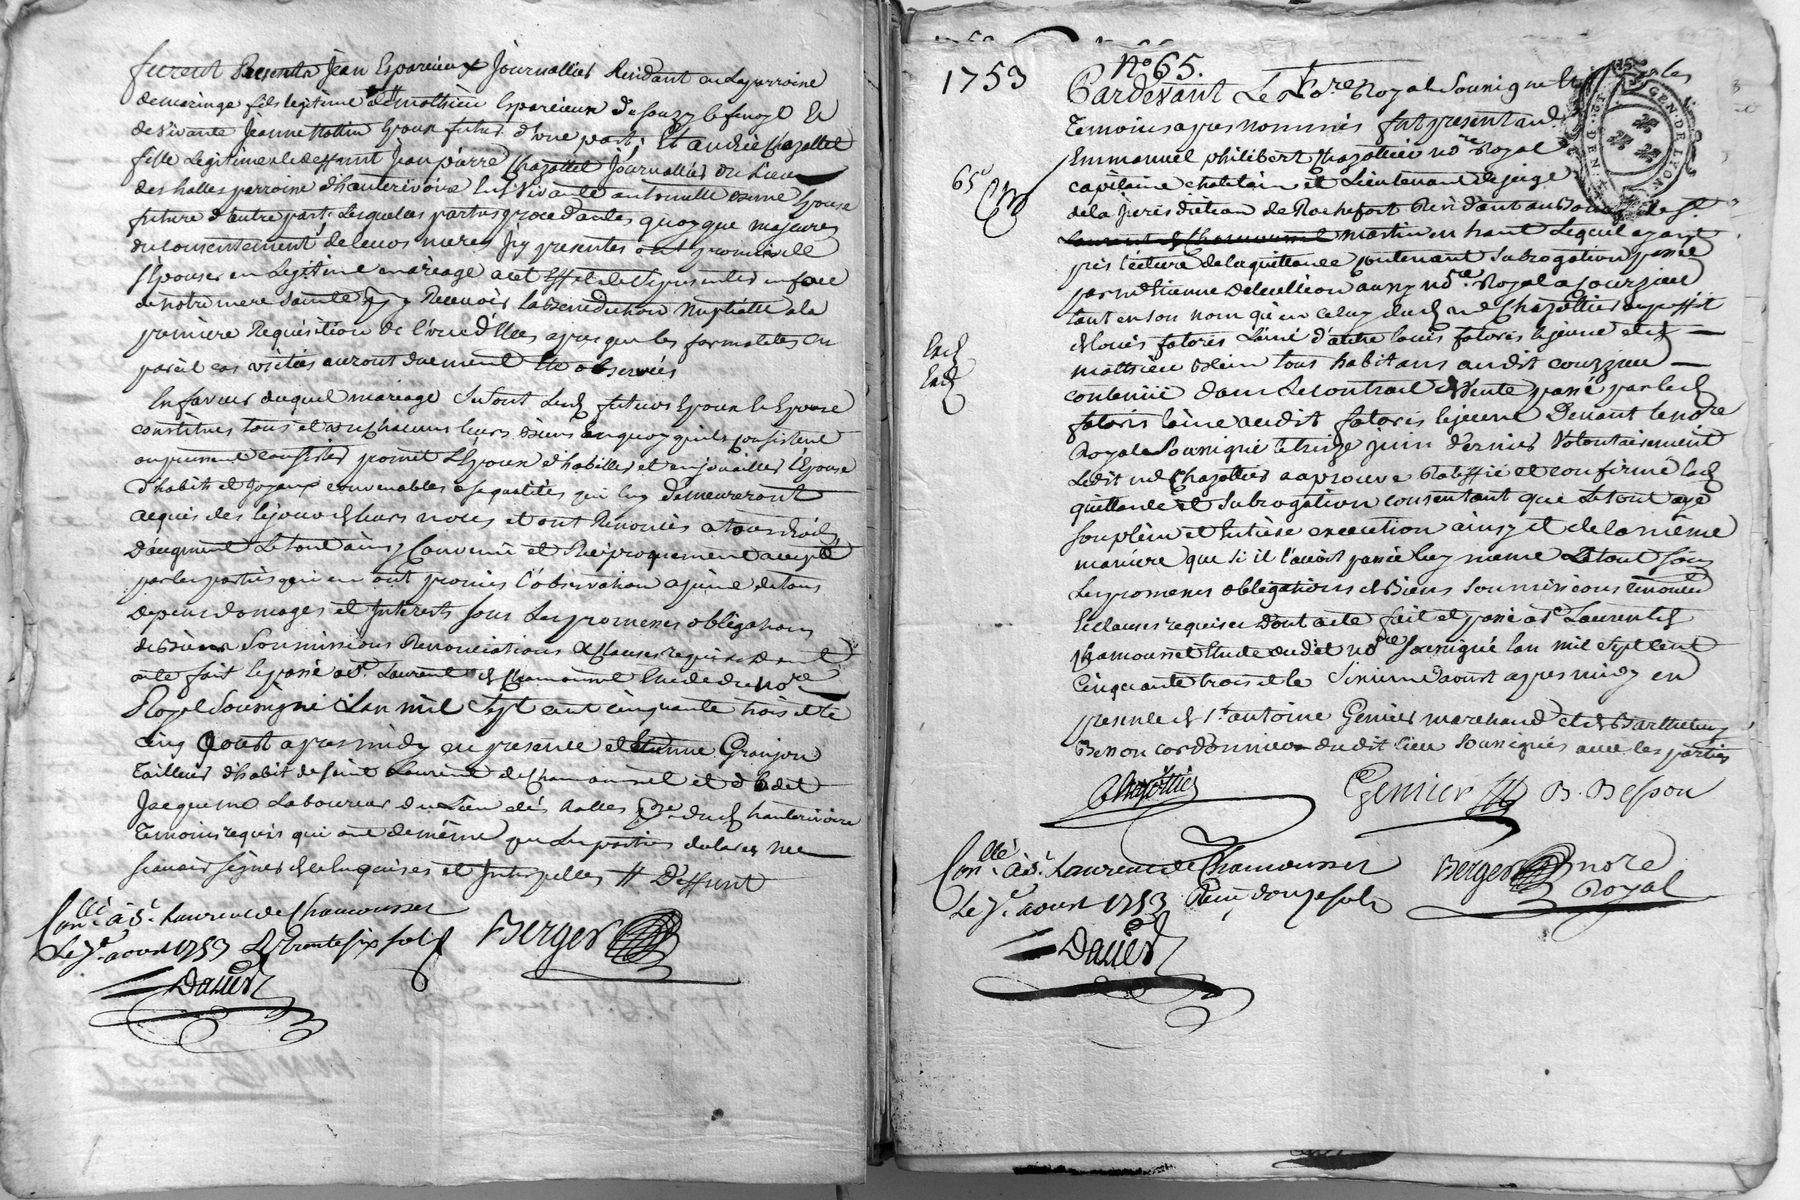 furent presents Jean Esparcieux Journallier Residant en la parroise
de maringe fils legitime de mathieu Esparcieux de souzy le
de vivante Jeanne Epoux futur d'une part, Et andrée Chazottel
fille Legitime de deffunt Jean pierre Chazottel Journallier du Lieu
des halles parroise d'hauterivoire Et vivante antoinette Epouse
future d'autre part. Lesquelles parties procedantes quoyque majeures
du consentement de leurs meres Icy presentes ont promis de
s'Epouser en Legitime mariage a cet Effet de se presenter en face
de notre mere sainte Eg. pr Recevoir la Benediction Nuptialle a la
premiere Requisition de l'une d'Elles apres que les formalités en
pareil cas usitées auront duement Eté observées
En faveur duquel mariage se sont Lesd. futurs Epoux et Epouse
constitués tous et un chacuns leurs Biens en quoy qu'ils consistent
ou puissent consister promet L'Epoux d'habiller et enjoailler l'Epouse
d'habits et Joyaux convenables a sa qualité qui luy demeureront
acquis des le jour de leurs noces et ont Renoncés a tous droits
d'augment Le tout ainsy Convenu et Reciproquement accepté
par les parties qui en ont promis l'observation a peine de tous
depens domages et Interets sous Les promesses obligations
de Biens Soumissions Renonciations & Clauses requises Dont
acte fait et passé a St. Laurent de Chamousset Etude du Nore
Royal Soussigné L'an mil Sept cent cinquante trois et le
cinq Aoust apres midy en presence d'etienne Granjon
Tailleur d'habit de saint Laurent de Chamousset et d'
Jacqueme Laboureur du Lieu des halles prse. dud. hauterivoire
Temoins requis qui ont de même que Les parties declarés ne
scavoir signer de ce Enquises et Interpellés // Deffunt
Conllé à St. Laurent de Chamousset
Le 7e. aoust 1753 R trente six sols
Berger
Dauer
1753
No 65.
Pardevant Le Nore Royal Soussigné Et les
Temoins apres nommés fut present
Emmanuel philibert Chazottier nore. Royal
capitaine chatelain et Lieutenant de juge
de la Jurisdiction de Rochefort Residant au Bourg de St.
Laurent de Chamousset martin en haut Lequel ayant
pris lecture de la quittance contenant Subrogation passée
par me Etienne Delullion aussy nore. Royal a
tant en son nom qu'en celuy dud. me Chazottier au proffit
de Louis fatoris L'ainé d'autre Louis fatoris le jeune et de
mathieu tous habitans audit couzieu
contenüe dans Le contract de Vente passé par led.
fatoris l'ainé audit fatoris le jeune Devant le nore
Royal Soussigné le treize juin dernier Volontairement
Ledit me Chazottier a aprouvé Ratiffié et confirmé lad.
quittance et Subrogation consentant que Le tout aye
son plein et Entiere execution ainsy et de la même
maniere que si il l'avoit passée luy meme Le tout sous
Les promesses obligations de Biens Soumissions Renon.ons
et clauses requises Dont acte fait et passé a St. Laurent de
Chamousset Etude dudit nore Soussigné l'an mil Sept cent
Cinquante trois et le Sixieme aoust apres midy en
presence de Sr. antoine Genier marchand et de Barthelemy
Besson cordonnier dudit lieu Soussignés avec les parties
65e
GEN. DE LYON
Chazottier
Genier
B. Besson
Conllé à St. Laurent de Chamousset
Le 7e. aoust 1753 Reçu douze sols
Berger nore
Royal
Dauer